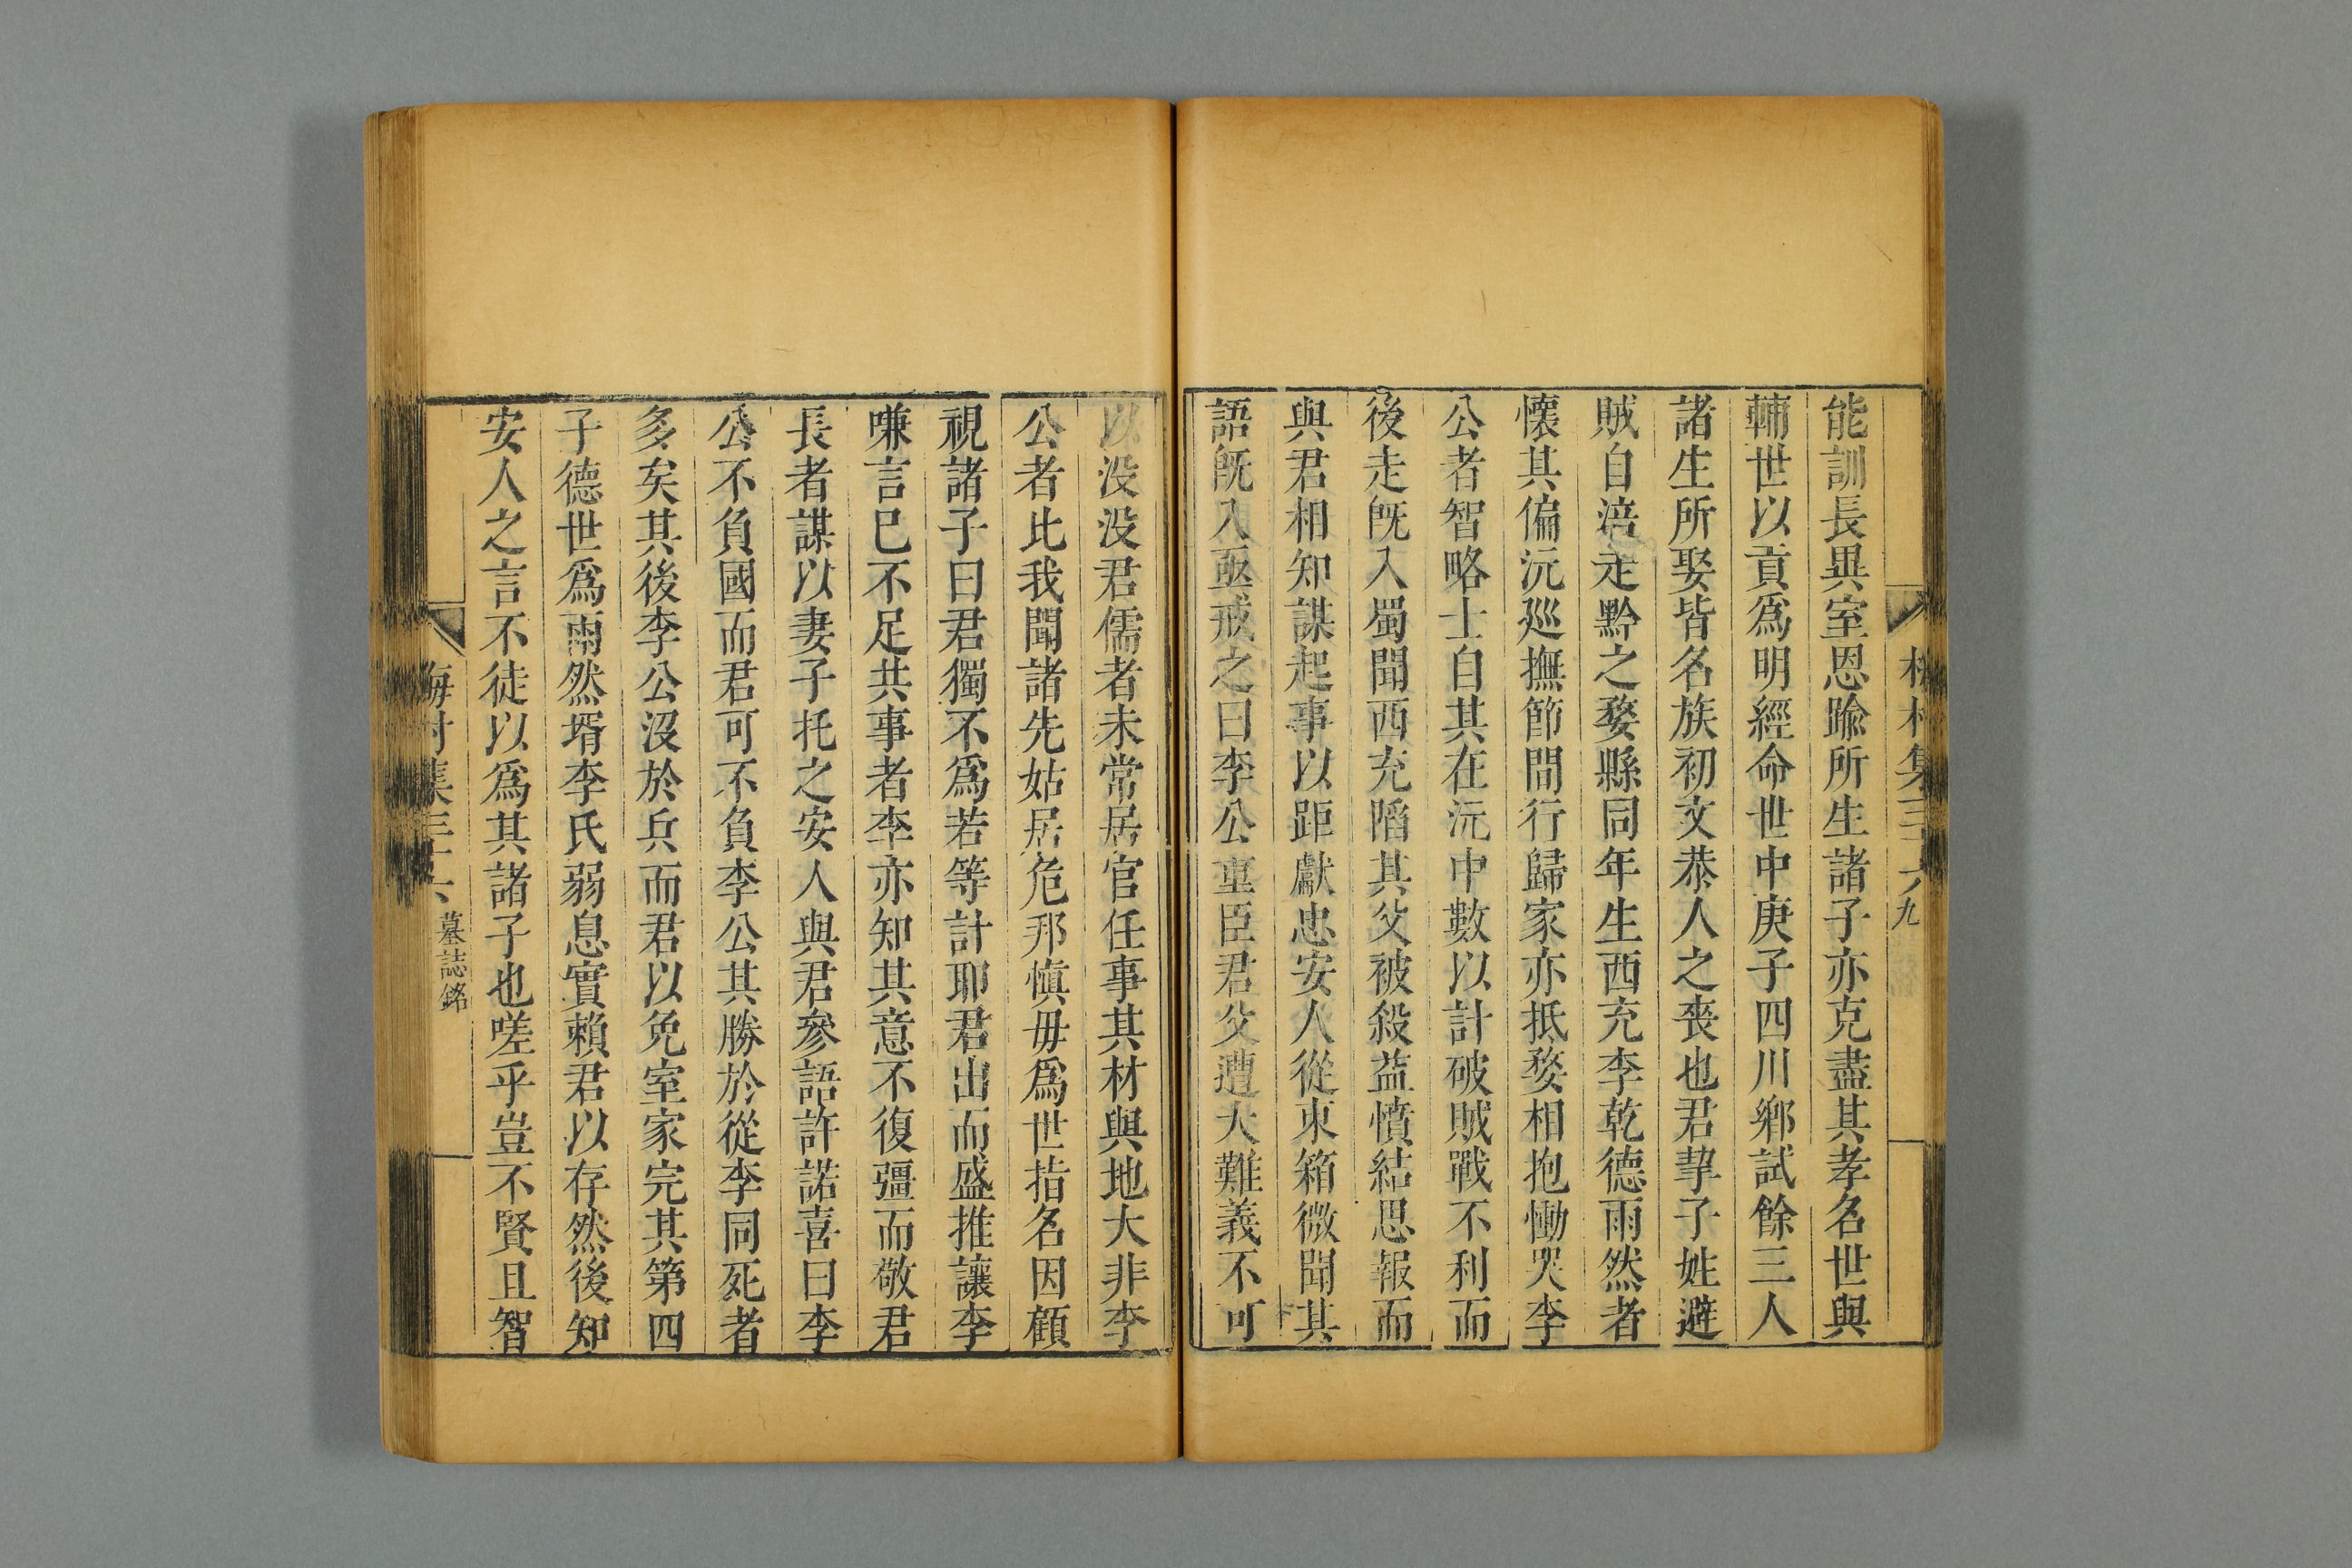 能訓長異室恩踰所生諸子亦克盡其孝名世與
輔世以貢爲明經命世中庚子四川鄉試餘三人
諸生所娶皆名族初文恭人之喪也君挈子姓避
賊自涪走黔之婺縣同年生西充李乾德雨然者
懷其偏沅廵撫節間行歸家亦抵婺相抱慟哭李
公者智略士自其在沅中數以計破賊戰不利而
後走旣入蜀聞西充䧟其父被殺益憤結思報而
與君相知謀起事以距獻忠安人從東箱微聞其
語旣入亟戒之曰李公重臣君父遭大難義不可
以没没君儒者未常居官任事其材與地大非李
公者比我聞諸先姑居危邦慎毋爲世指名因顧
視諸子曰君獨不爲若等計耶君出而盛推讓李
嗛言已不足共事者李亦知其意不復彊而敬君
長者謀以妻子托之安人與君參語許諾喜曰李
公不負國而君可不負李公其勝於從李同死者
多矣其後李公沒於兵而君以免室家完其第四
子德世爲雨然壻李氏弱息實賴君以存然後知
安人之言不徒以爲其諸子也嗟乎豈不賢且智
梅村集三十六 墓誌銘